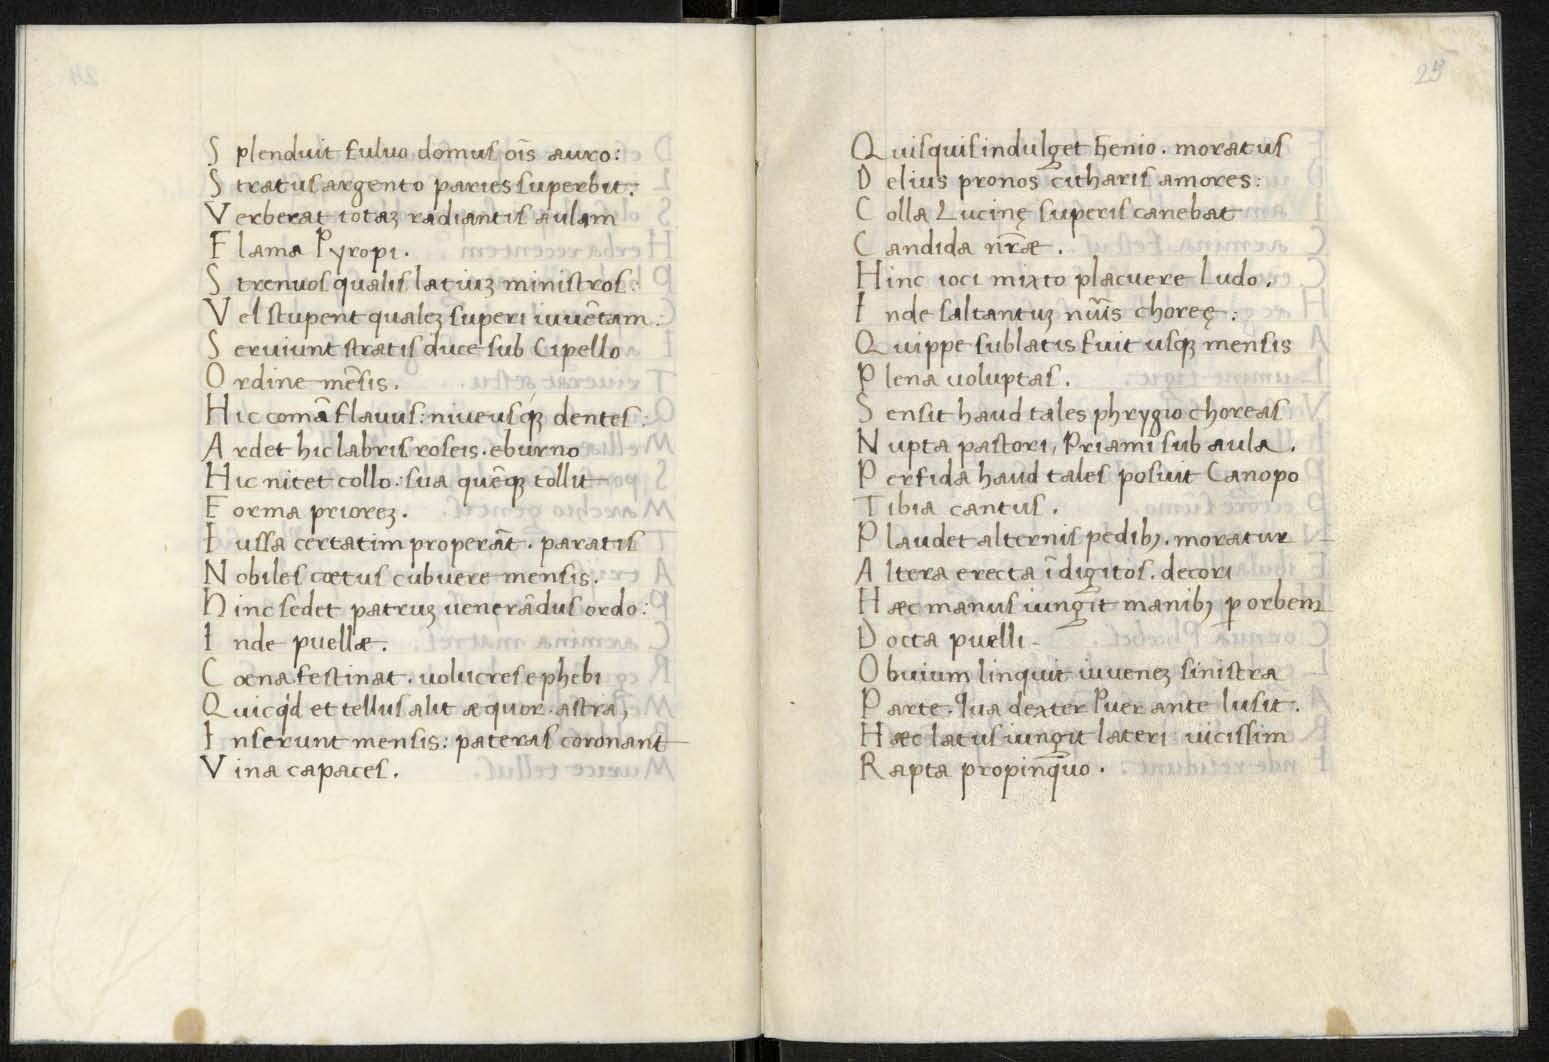 Splenduit fuluo domus oīs auro:
Stratus argento paries superbit:
Verberat totaꝫ radiantis aulam
Flama Pyropi.
Strenuos qualis latiuꝫ ministros:
Vel stupent qualeꝫ superi iuuētam:
Seruiunt stratis duce sub Cipello
Ordine mēsis.
Hic comā flauus: niueusqꝫ dentes:
Ardet hic labris roseis. eburno
Hic nitet collo: sua quēqꝫ tollit
Forma prioreꝫ.
Iussa certatim properāt. paratis
Nobiles cœtus cubuere mensis.
Hinc sedet patruꝫ uenerādus ordo:
Inde puellæ.
Cœna festinat. uolucres ephebi
Quicq́d et tellus alit æquor. astra,
Inserunt mensis: pateras coronant
Vina capaces.
25
Quisquis indulget henio. moratus
Delius pronos citharis amores:
Colla Lucinę superis canebat
Candida nr̄æ.
Hinc ioci mixto placuere Ludo.
Inde saltantuꝫ nūīs choreę:
Quippe sublatis fuit usqꝫ mensis
Plena uoluptas.
Sensit haud tales phrygio choreas
Nupta pastori, Priami sub aula.
Perfida haud tales posuit Canopo
Tibia cantus.
Plaudet alternis pedibꝫ. moratur
Altera erecta ī digitos. decori
Hæc manus iungit manibꝫ ꝑ orbem
Docta puelli.
Obuium linquit iuueneꝫ sinistra
Parte. Qua dexter Puer ante lusit.
Hæc latus iungit lateri uicissim
Rapta propinq̄uo.